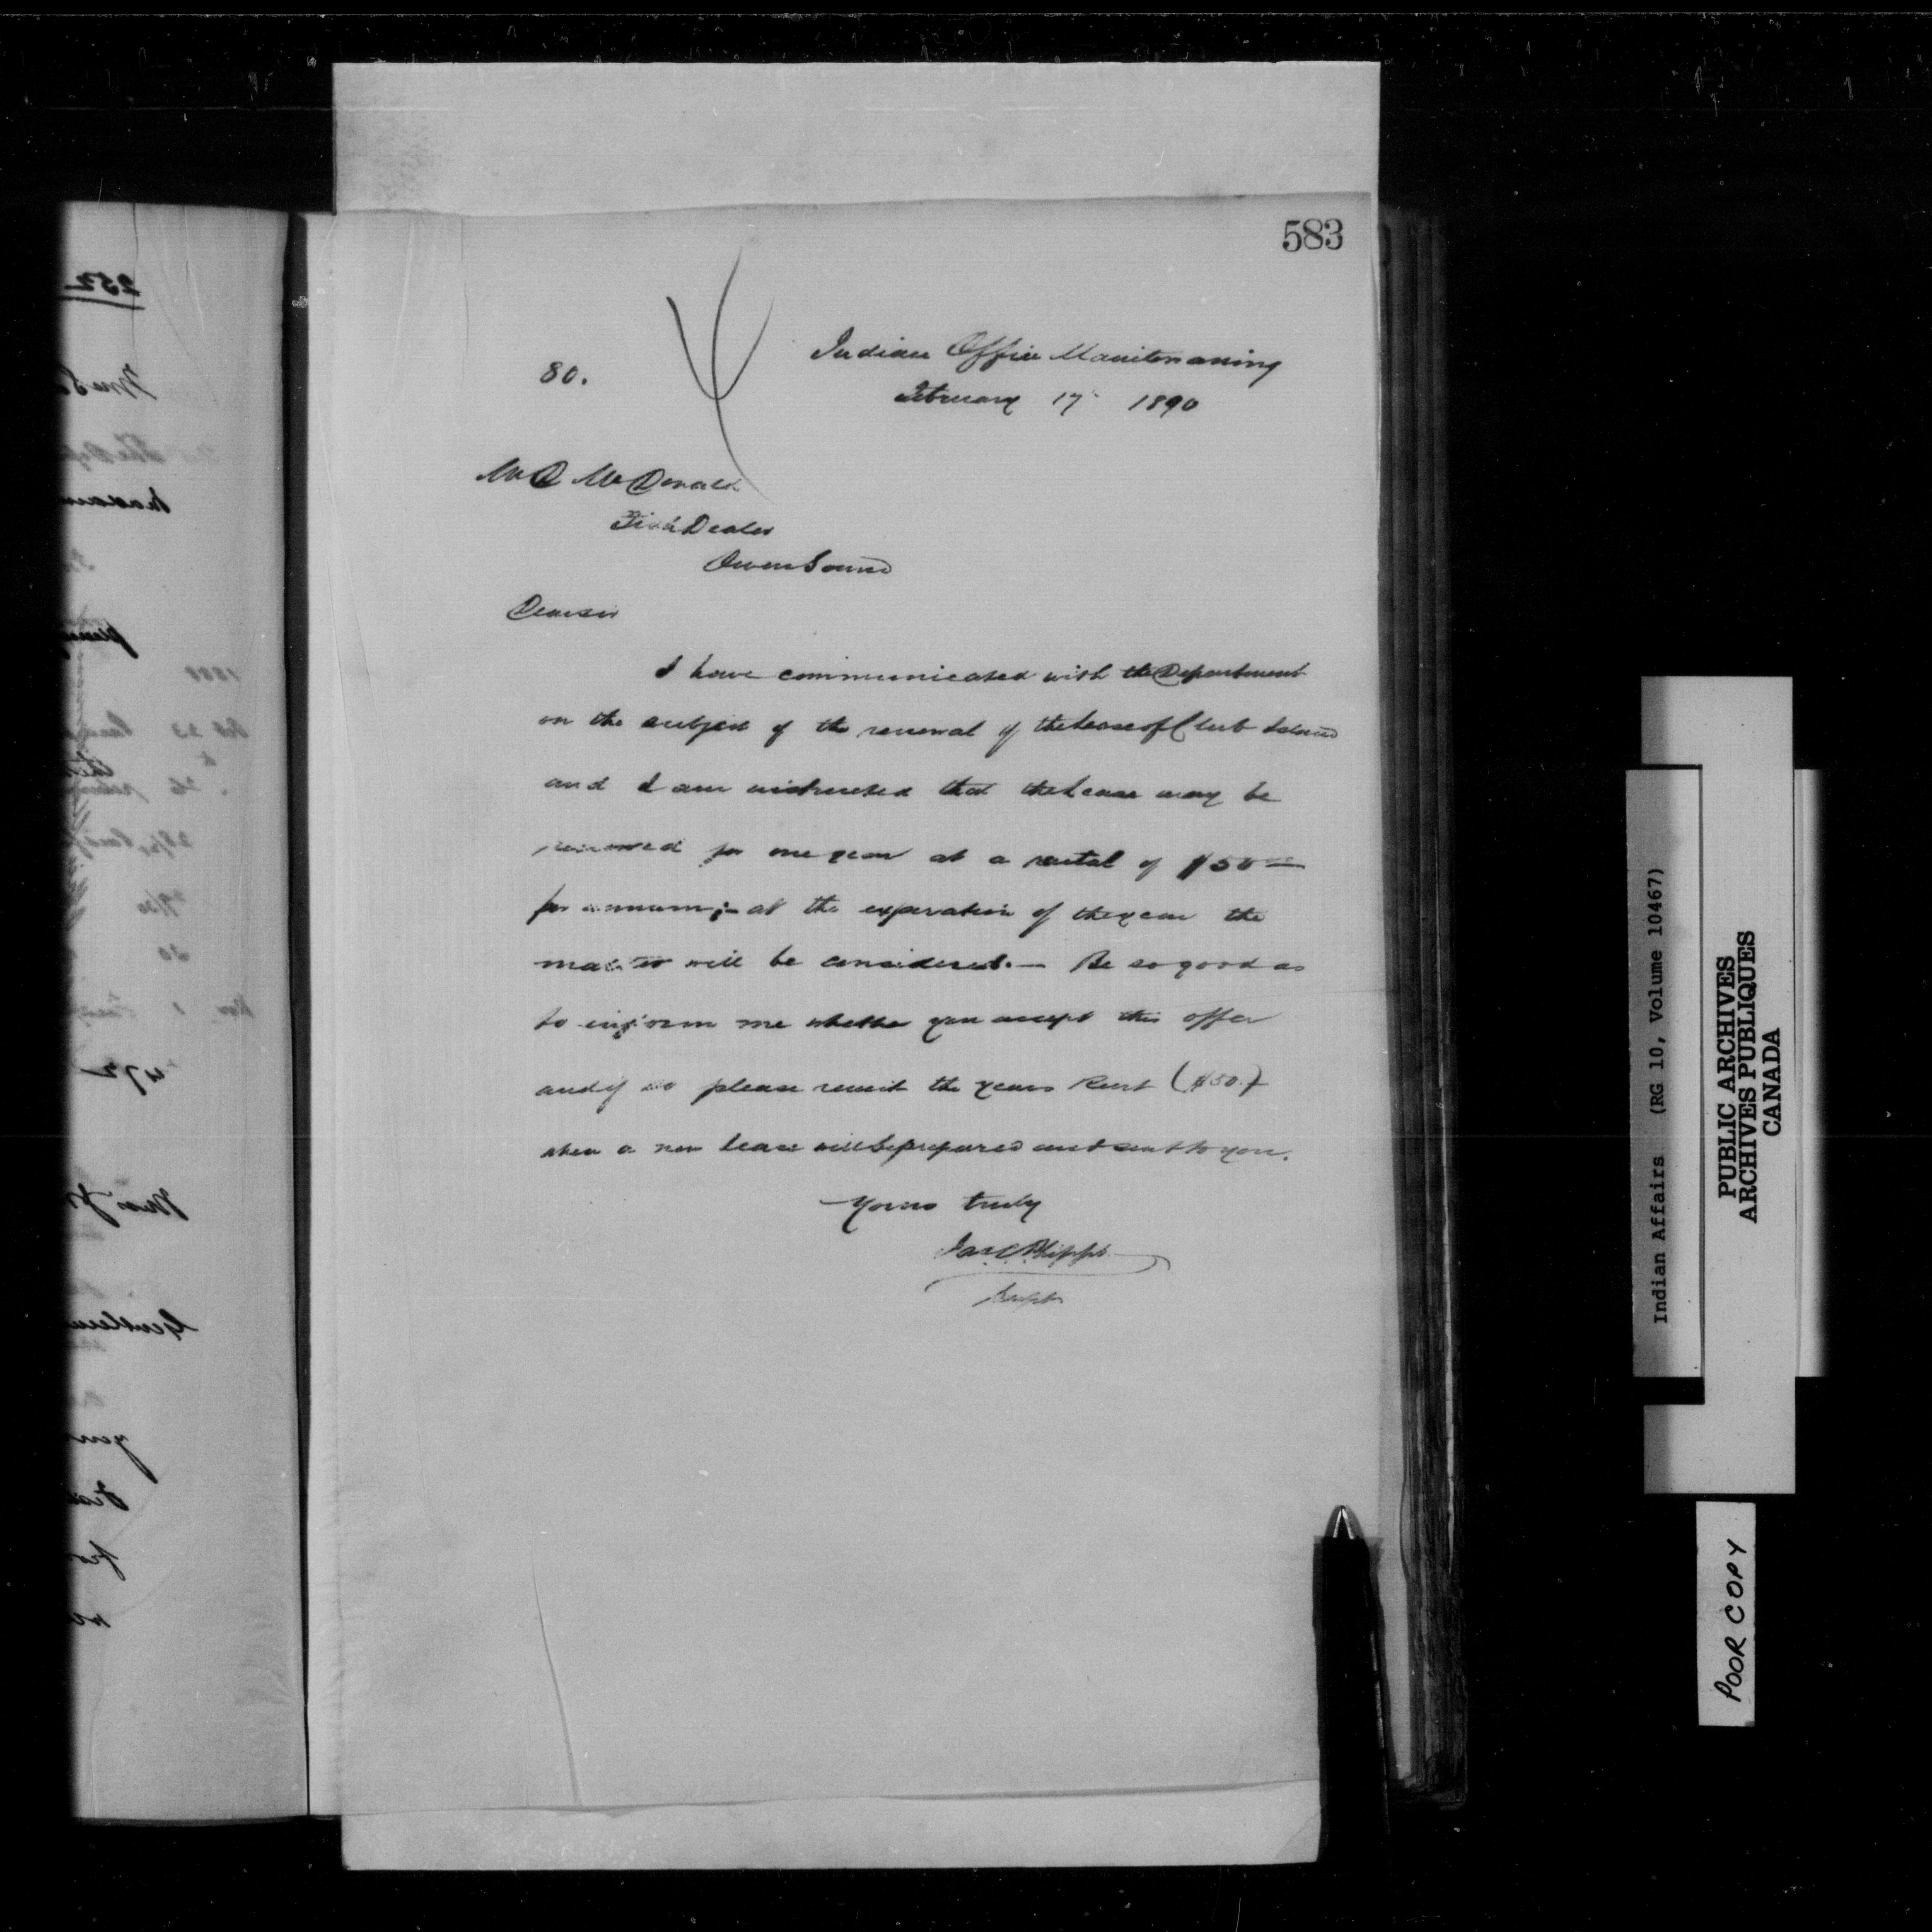 583
80.
Indian Office Manitowaning
February 17 1890
Mr D McDonald
Fish Dealer
Owen Sound
Dear Sir
I have communicated with the Department
on the subject of the renewal of the Lease of Club Island
and I am instructed that the Lease may be
renewed for one year at a rental of $50 00
per annum;- at the expiration of the year the
matter will be considered.— Be so good as
to inform me whether you accept this offer
and if so please remit the years Rent ($50.)
when a new Lease will be prepared and sent to you.
Yours truly
Jas C Phipps
Supt
Indian Affairs (RG 10, Volume 10467)
PUBLIC ARCHIVES
ARCHIVES PUBLIQUES
CANADA
POOR COPY